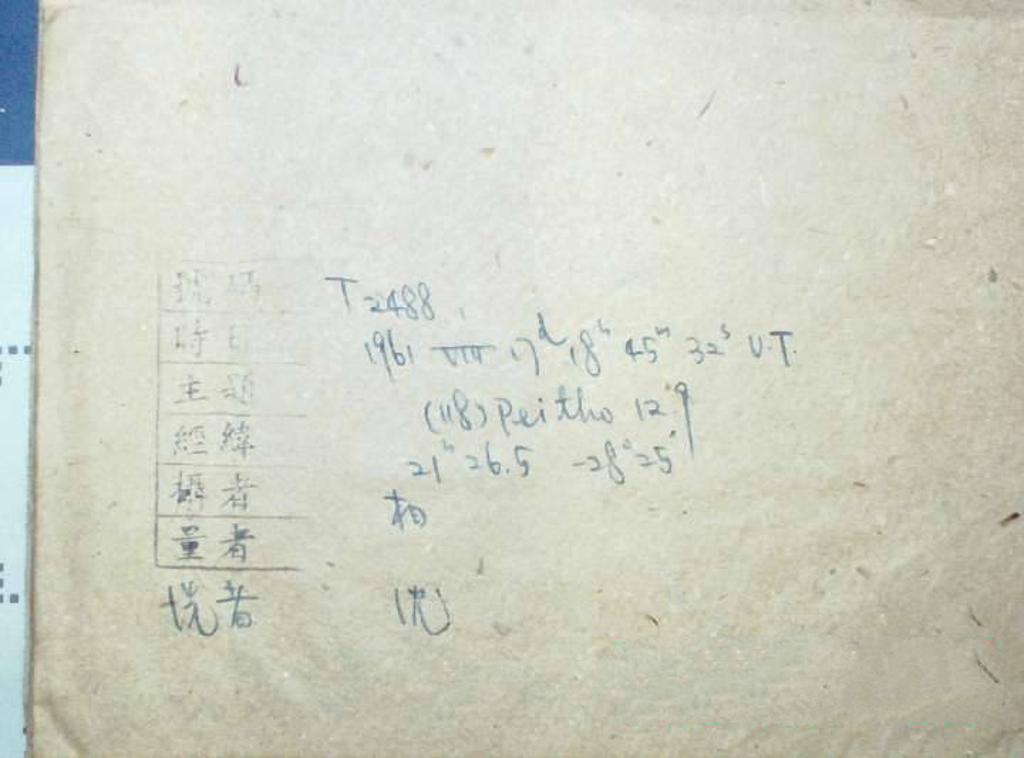 號碼 T 2488
時日 1961 VIII 17ᵈ 18ʰ 45ᵐ 32ˢ U.T.
主題 (118) Peitho 12.9
經緯 21ʰ 26.5 -28°25'
攝者 柏
量者
洗者 沈